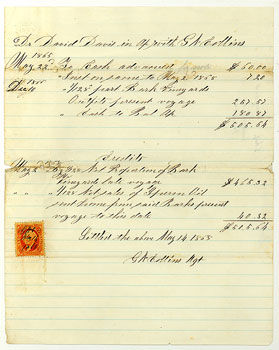 Dr David Davis in a/c with G. W. Collins
1865
May 22d To Cash advanced $50.00
" Inst on same to May 2d 1868 7.20
" 1/28 part Bark Vineyards
Outfits present voyage 267.57
" Cash to Bal a/c 180.87
$505.64
Credits
May 2 By Net Proportion of Bark
Vineyards late voyage $465.32
" " Net sales of Sperm Oil
sent home from said Barks present
voyage to this date 40.32
$505.64
Settled the above May 14 1868
G W Collins Agt